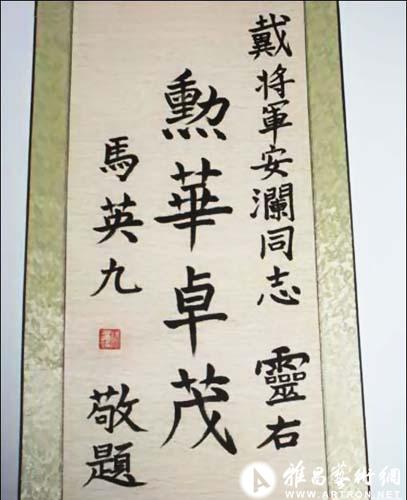 戴將軍安瀾同志 靈右
勲華卓茂
馬英九 敬題
雅昌藝術網
WWW.ARTRON.NET